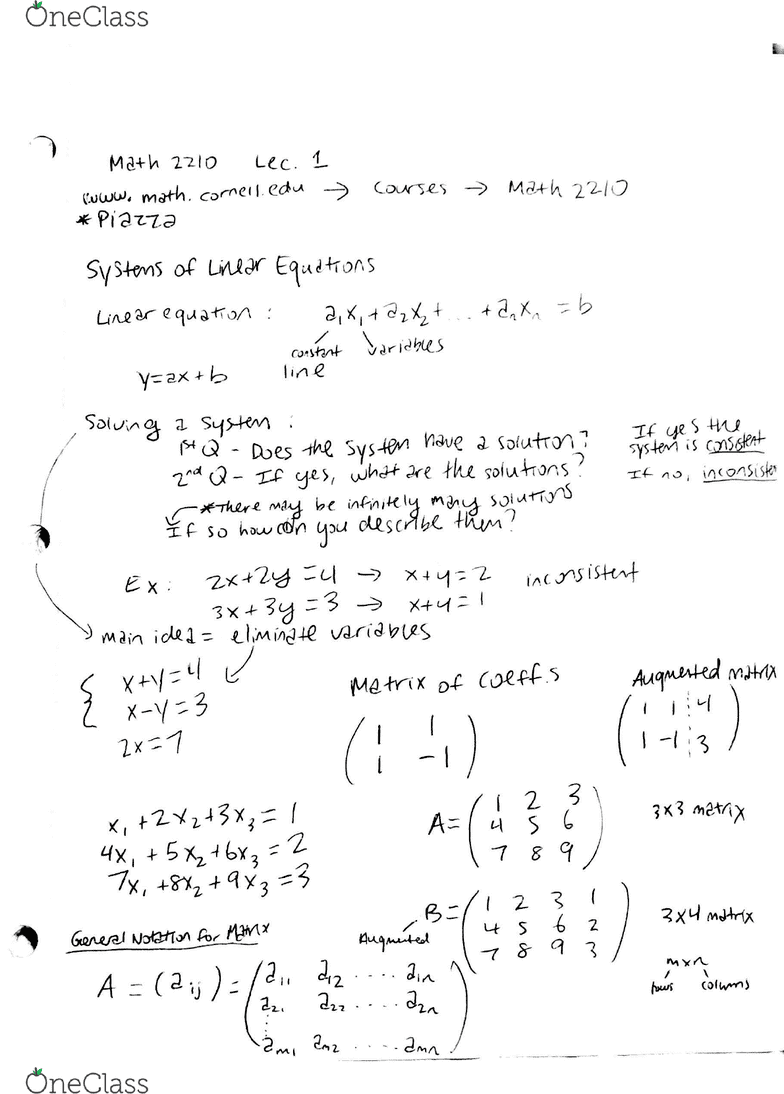 OneClass
Math 2210 Lec. 1
www. math. cornell. edu → Courses → Math 2210
* Piazza
Systems of Linear Equations
Linear equation : a₁x₁ + a₂x₂ + ... + aₙxₙ = b
constant variables
y=ax+b line
Solving a System :
1st Q - Does the system have a solution?
If yes the system is consistent
2nd Q - If yes, what are the solutions?
If no, inconsiste
* There may be infinitely many solutions
If so how can you describe them?
Ex: 2x+2y=4 → x+y=2 inconsistent
3x+3y=3 → x+y=1
main idea = eliminate variables
{ x+y=4
x-y=3
2x=7
Matrix of coeff.s
( 1 1
1 -1 )
Augmented matrix
( 1 1 ¦ 4
1 -1 ¦ 3 )
x₁ + 2x₂ + 3x₃ = 1
4x₁ + 5x₂ + 6x₃ = 2
7x₁ + 8x₂ + 9x₃ = 3
A= ( 1 2 3
4 5 6
7 8 9 )
3x3 matrix
B= ( 1 2 3 1
4 5 6 2
7 8 9 3 )
Augmented
3x4 matrix
mxn
rows columns
General Notation for Matrix
A = (aᵢⱼ) = ( a₁₁ a₁₂ .... a₁ₙ
a₂₁ a₂₂ .... a₂ₙ
⋮
aₘ₁ aₘ₂ .... aₘₙ )
OneClass